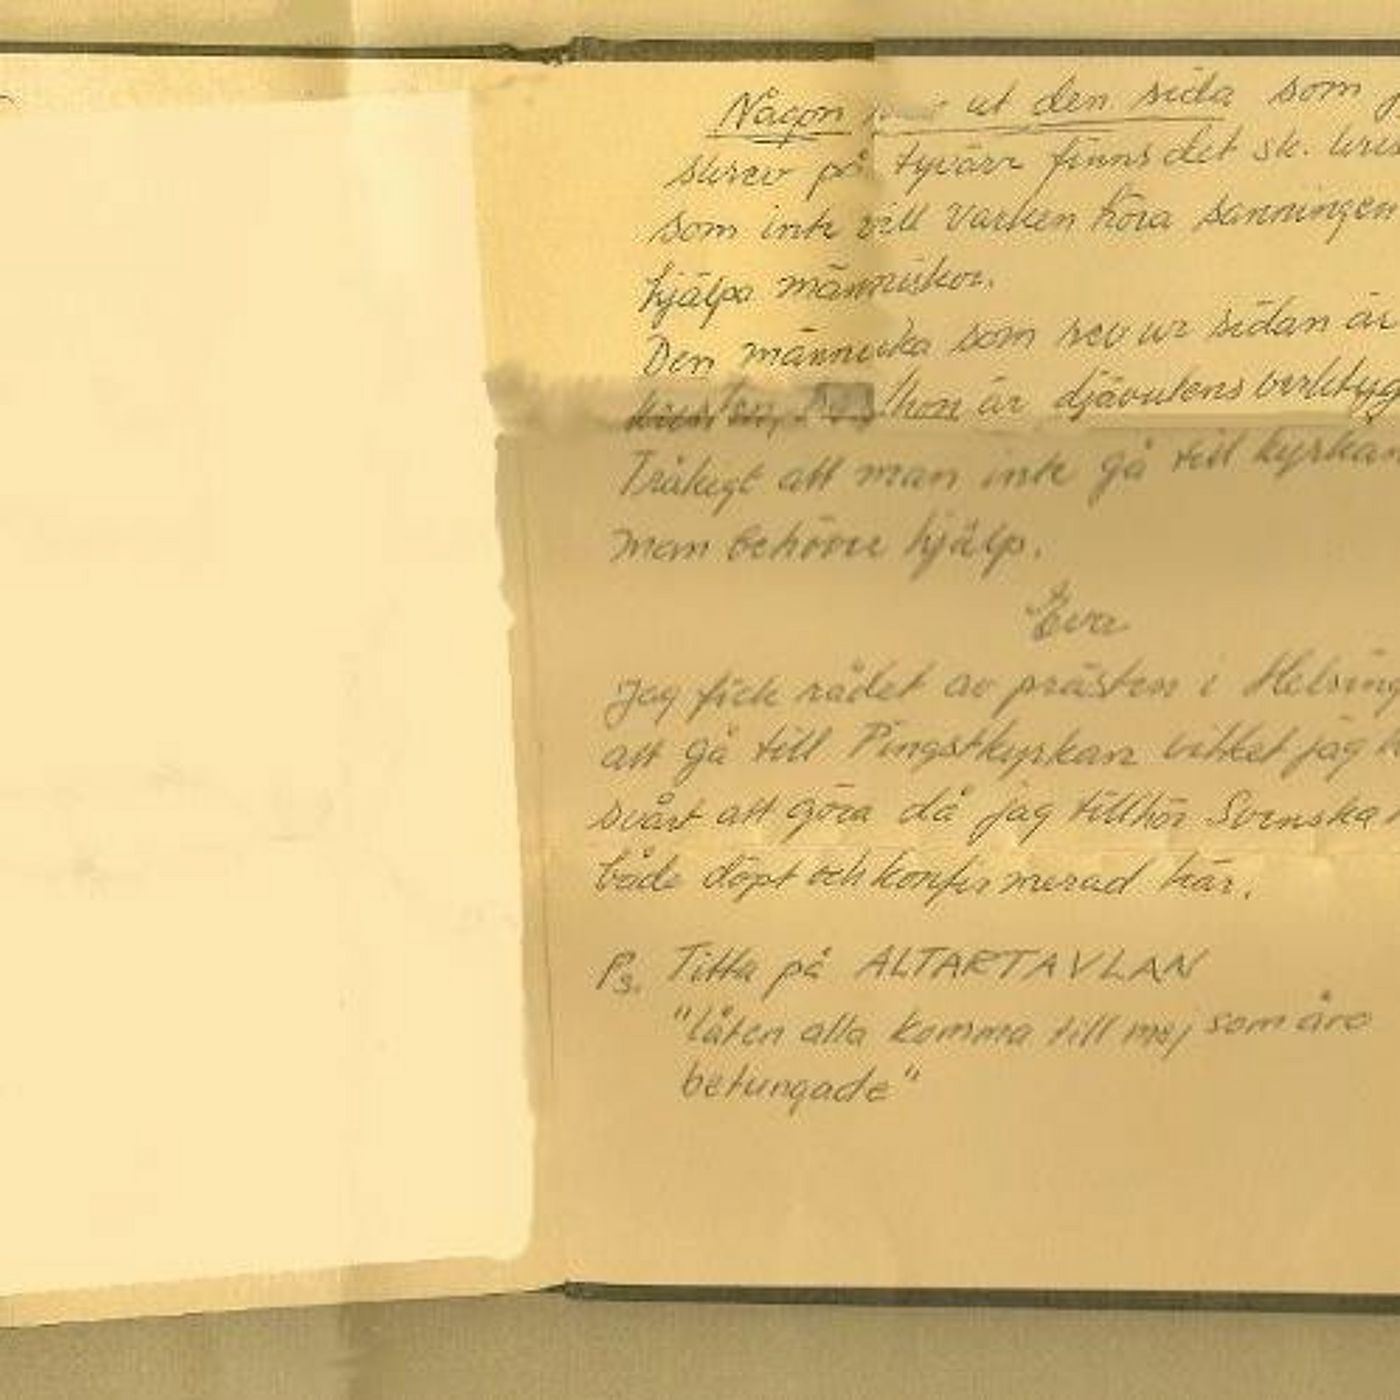 Någon ut den sida som
skrev på tyvärr finns det sk.
som inte vill varken höra sanningen
hjälpa människor.
Den människa som rev ur sidan är
hon är djävulens verktyg
Tråkigt att man inte gå till kyrkan
man behöver hjälp.
Eva
Jag fick rådet av prästen i Helsing
att gå till Pingstkyrkan vilket jag
svårt att göra då jag tillhör Svenska
både döpt och konfirmerad här.
Ps. Titta på ALTARTAVLAN
"låten alla komma till mej som äro
betungade"